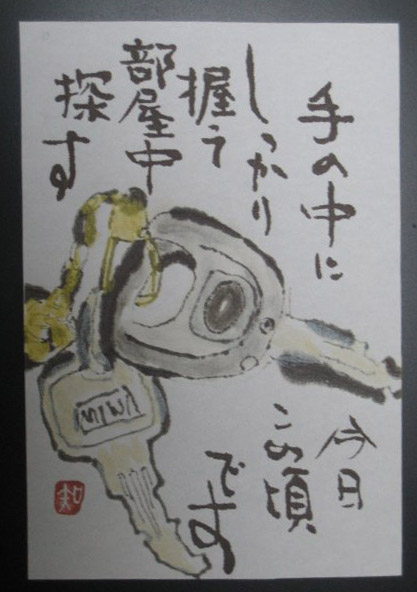 手の中に
しっかり
握って
部屋中
探す
今日
この頃
です